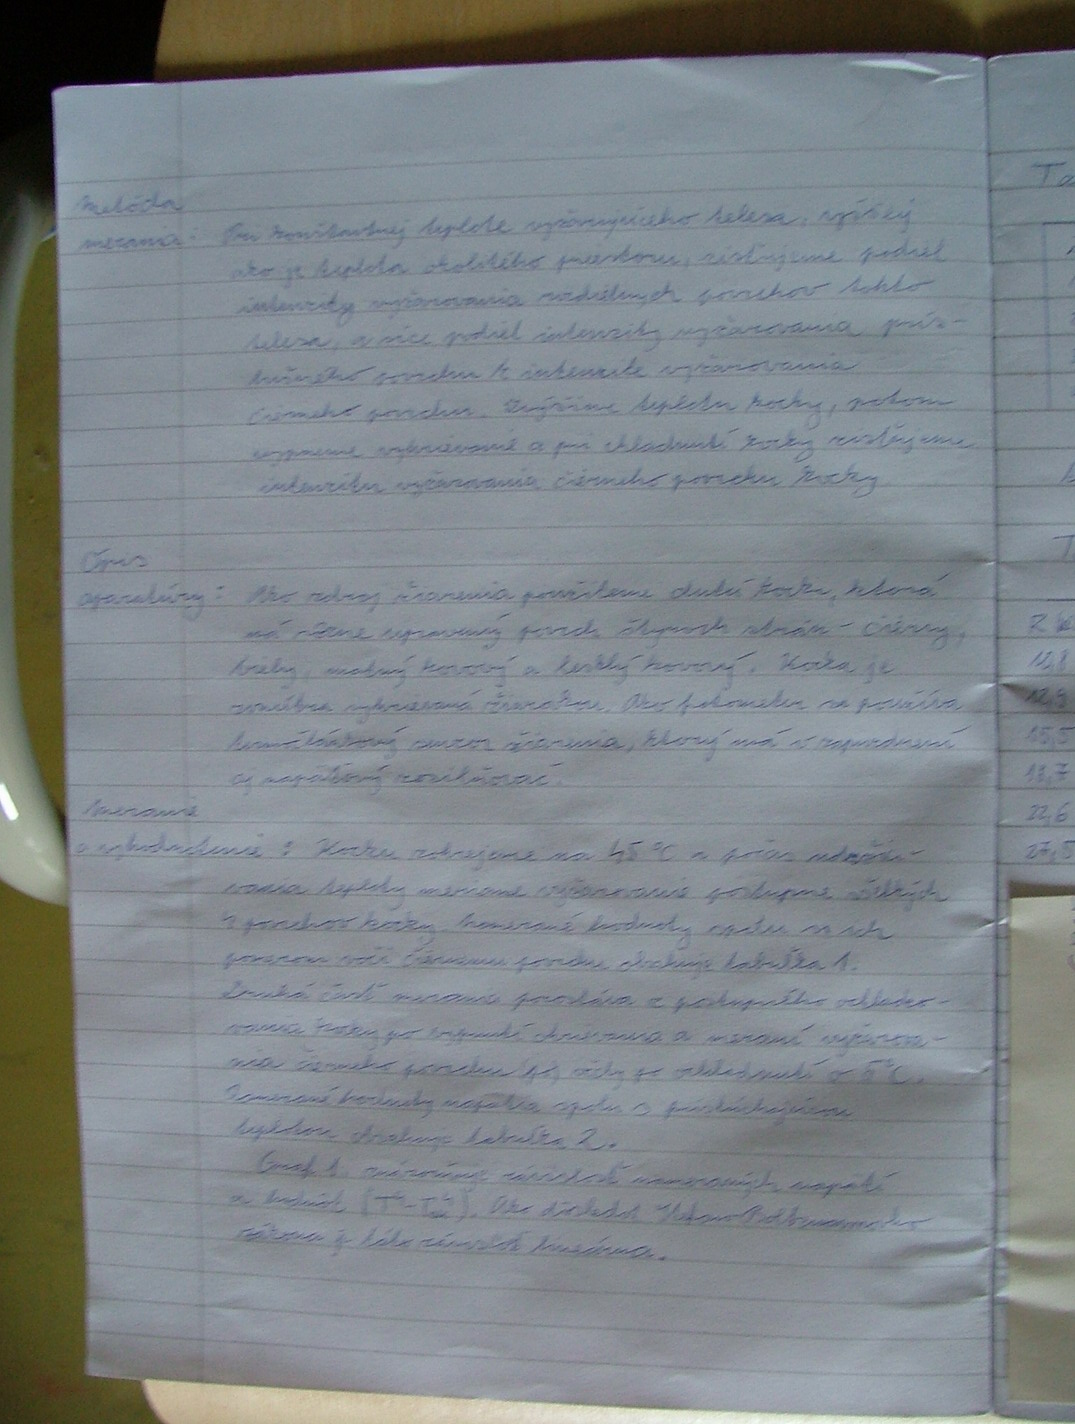 Metóda
merania: Pri konštantnej teplote vyžarujúceho telesa, vyššej
ako je teplota okolitého priestoru, zisťujeme podiel
intenzity vyžarovania rozdielnych povrchov tohto
telesa, a síce podiel intenzity vyžarovania prís-
lušného povrchu k intenzite vyžarovania
čierneho povrchu. Zvýšime teplotu kocky, potom
vypneme vyhrievanie a pri chladnutí kocky zisťujeme
intenzitu vyžarovania čierneho povrchu kocky
Opis
aparatúry: Ako zdroj žiarenia použijeme dutú kocku, ktorá
má rôzne upravený povrch štyroch strán - čierny,
biely, matný kovový a lesklý kovový. Kocka je
zvnútra vyhrievaná žiarovkou. Ako fotometer sa používa
termočlánkový senzor žiarenia, ktorý má v zapuzdrení
aj napäťový zosilňovač.
Meranie
a vyhodnotenie: Kocku zohrejeme na 45 °C a počas udržia-
vania teploty meriame vyžarovanie postupne všetkých
4 povrchov kocky. Namerané hodnoty spolu s ich
pomerom voči čiernemu povrchu obsahuje tabuľka 1.
Druhá časť merania pozostáva z postupného ochladzo-
vania kocky po vypnutí ohrievania a meraní vyžarova-
nia čierneho povrchu vždy po ochladnutí o 5°C.
Namerané hodnoty napätia spolu s prislúchajúcou
teplotou obsahuje tabuľka 2.
Graf 1. znázorňuje závislosť nameraných napätí
a hodnôt
zákona je táto závislosť lineárna.
Ta
T
12,8
12,9
15,5
18,7
22,6
27,5